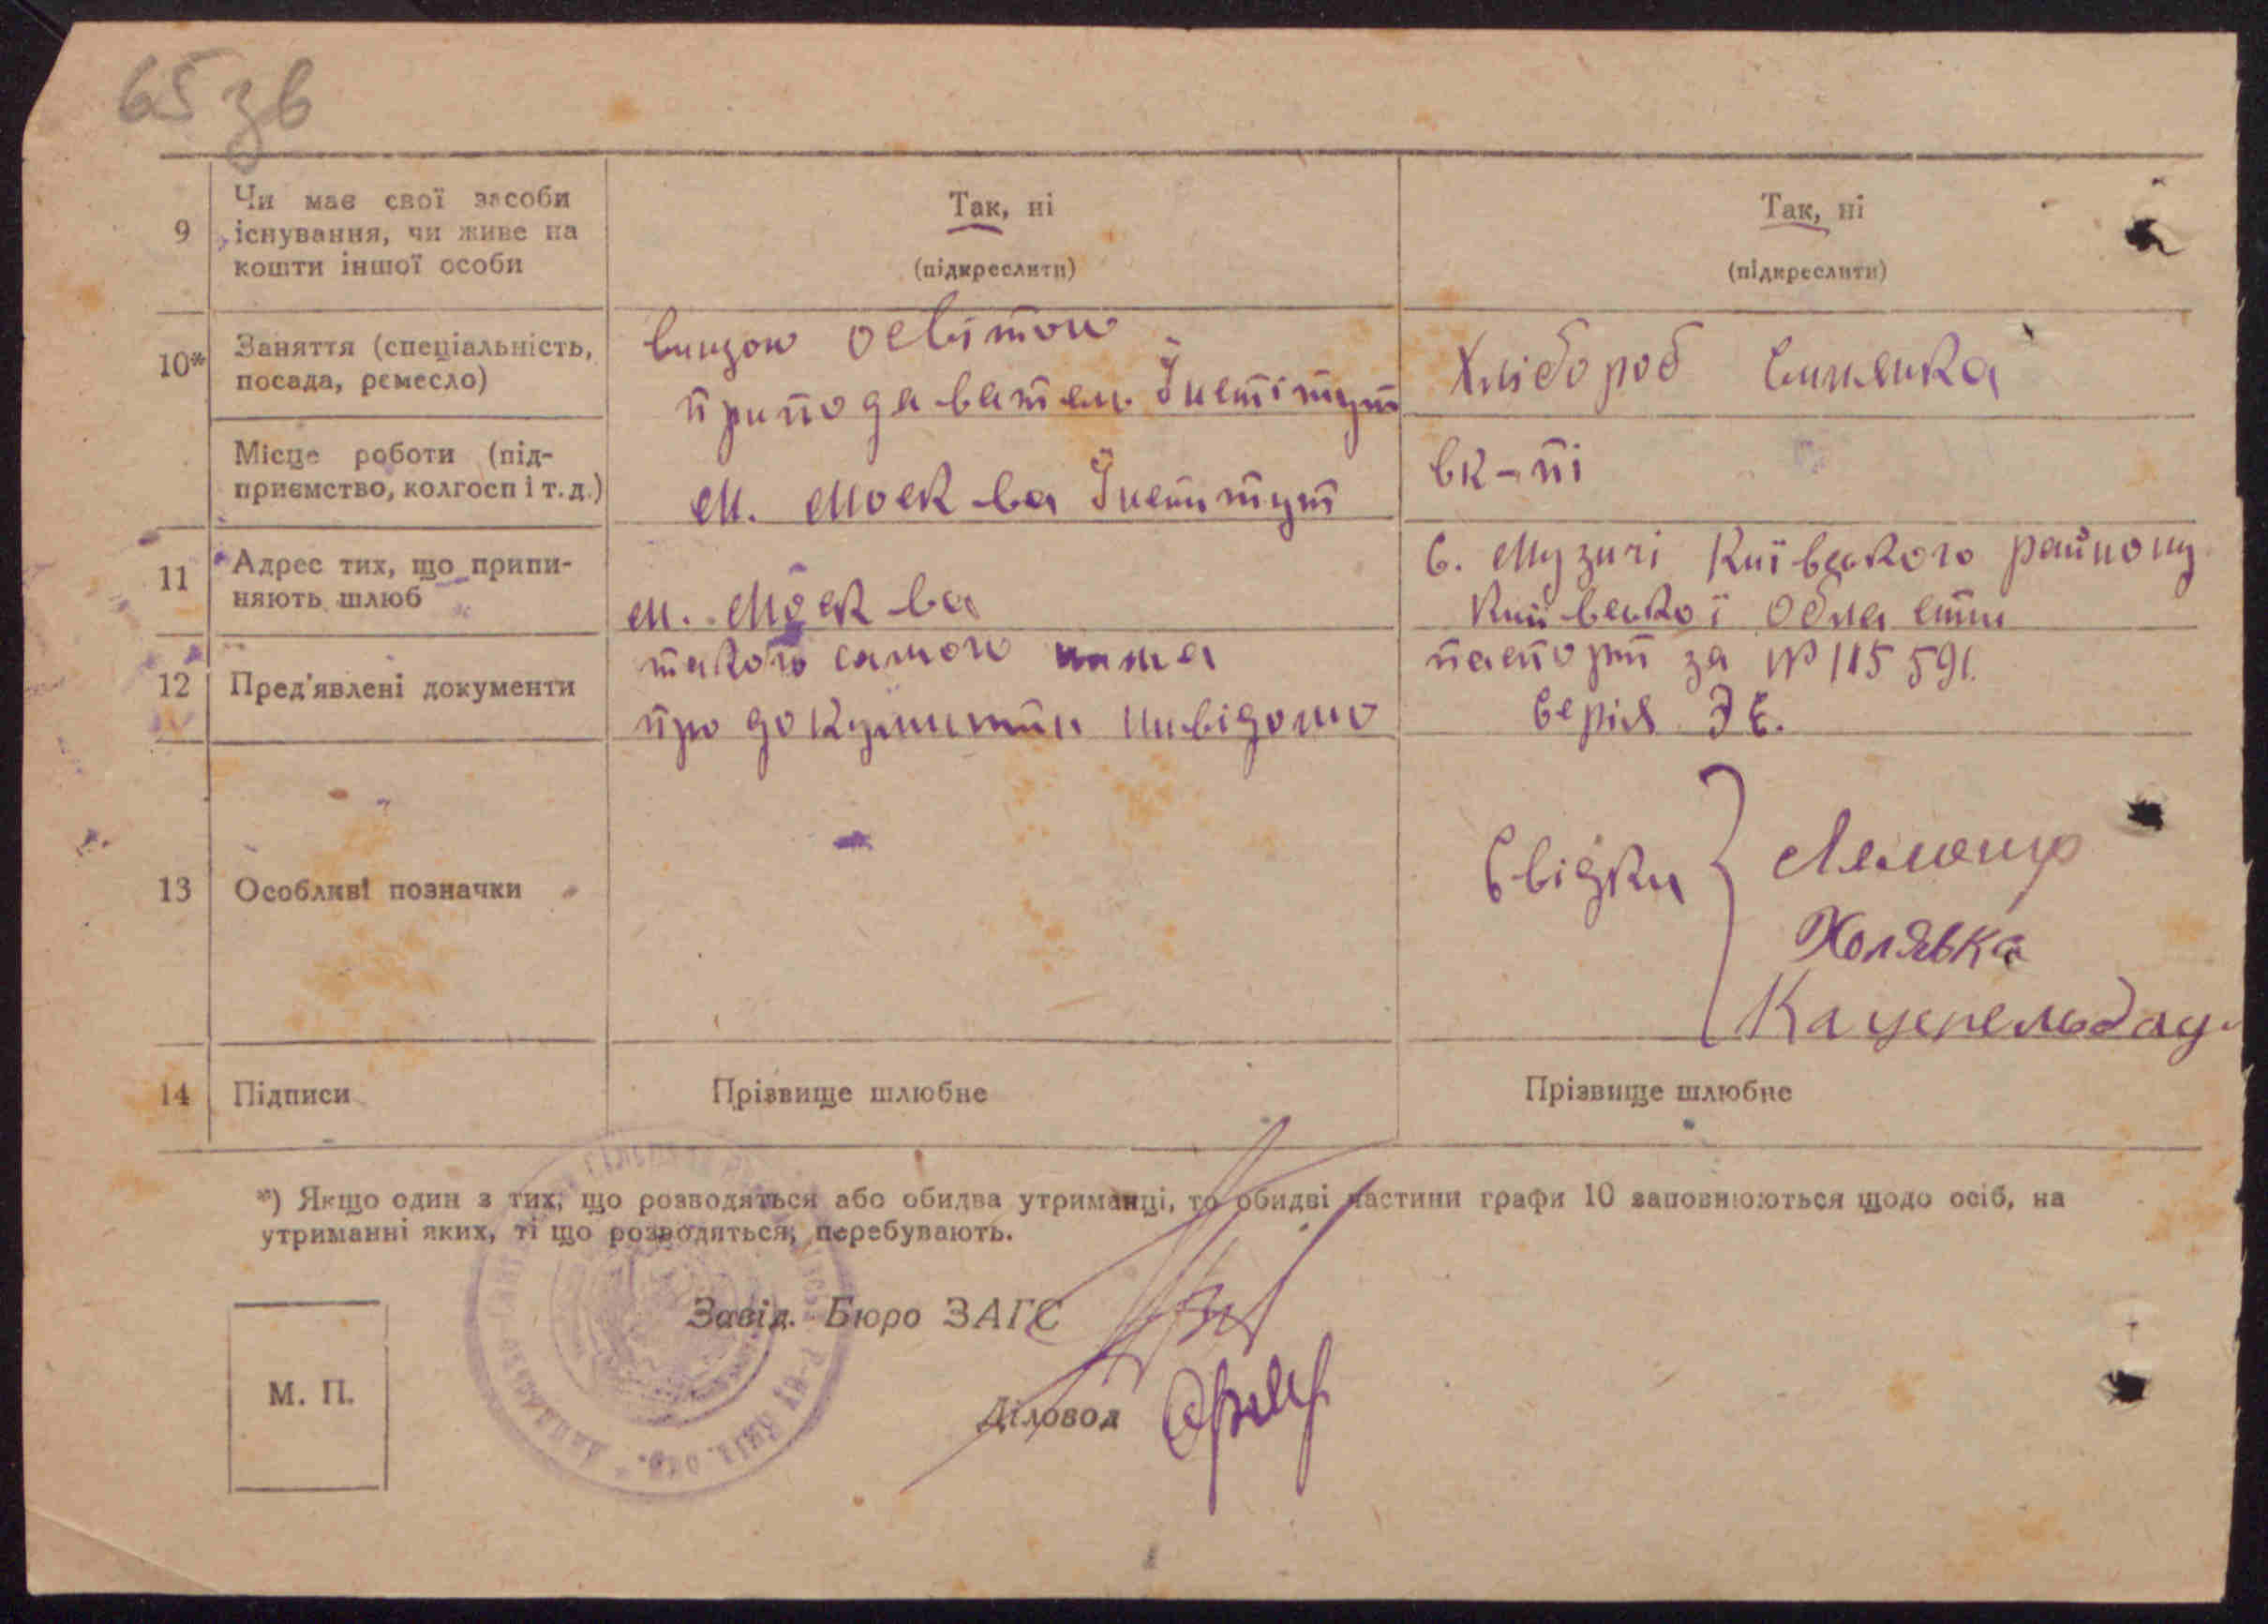 65 зв
9
Чи має свої засоби
існування, чи живе на
кошти іншої особи
Так, ні
(підкреслити)
Так, ні
(підкреслити)
10*
Заняття (спеціальність,
посада, ремесло)
вищою освітою
приподаватель Інстітут
Хлібороб
Місце роботи (під-
приємство, колгосп і т. д.)
м. Москва Інститут
вк-пі
11
Адрес тих, що припи-
няють шлюб
м. Москва
с. Музичі Київського району
Київської области
12
Пред'явлені документи
такого самою нима
про документи нивідомо
паспорт за № 115591.
серія ЭЕ.
13
Особливі позначки
Свідки
Холявка
14
Підписи
Прізвище шлюбне
Прізвище шлюбне
*) Якщо один з тих, що розводяться або обидва утриманці, то обидві частини графи 10 заповнюються щодо осіб, на
утриманні яких, ті що розводяться, перебувають.
Завід. Бюро ЗАГС
М. П.
Діловод